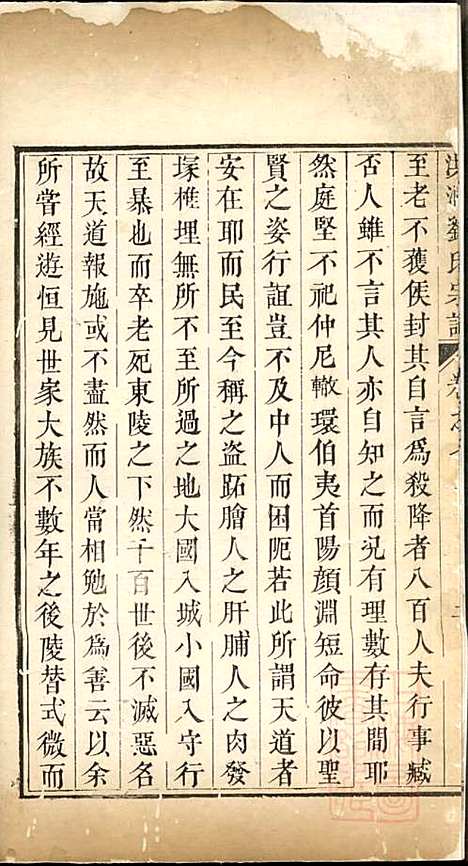 劉氏宗譜
至老不獲侯封其自言為殺降者八百人夫行事臧
否人雖不言其人亦自知之而況有理數存其間耶
然庭堅不祀仲尼轍環伯夷首陽顏淵短命彼以聖
賢之姿行誼豈不及中人而困阨若此所謂天道者
安在耶而民至今稱之盜跖膾人之肝脯人之肉發
塚椎埋無所不至所過之地大國入城小國入守行
至暴也而卒老死東陵之下然千百世後不滅惡名
故天道報施或不盡然而人當相勉於為善云以余
所嘗經遊恒見世家大族不數年之後陵替式微而